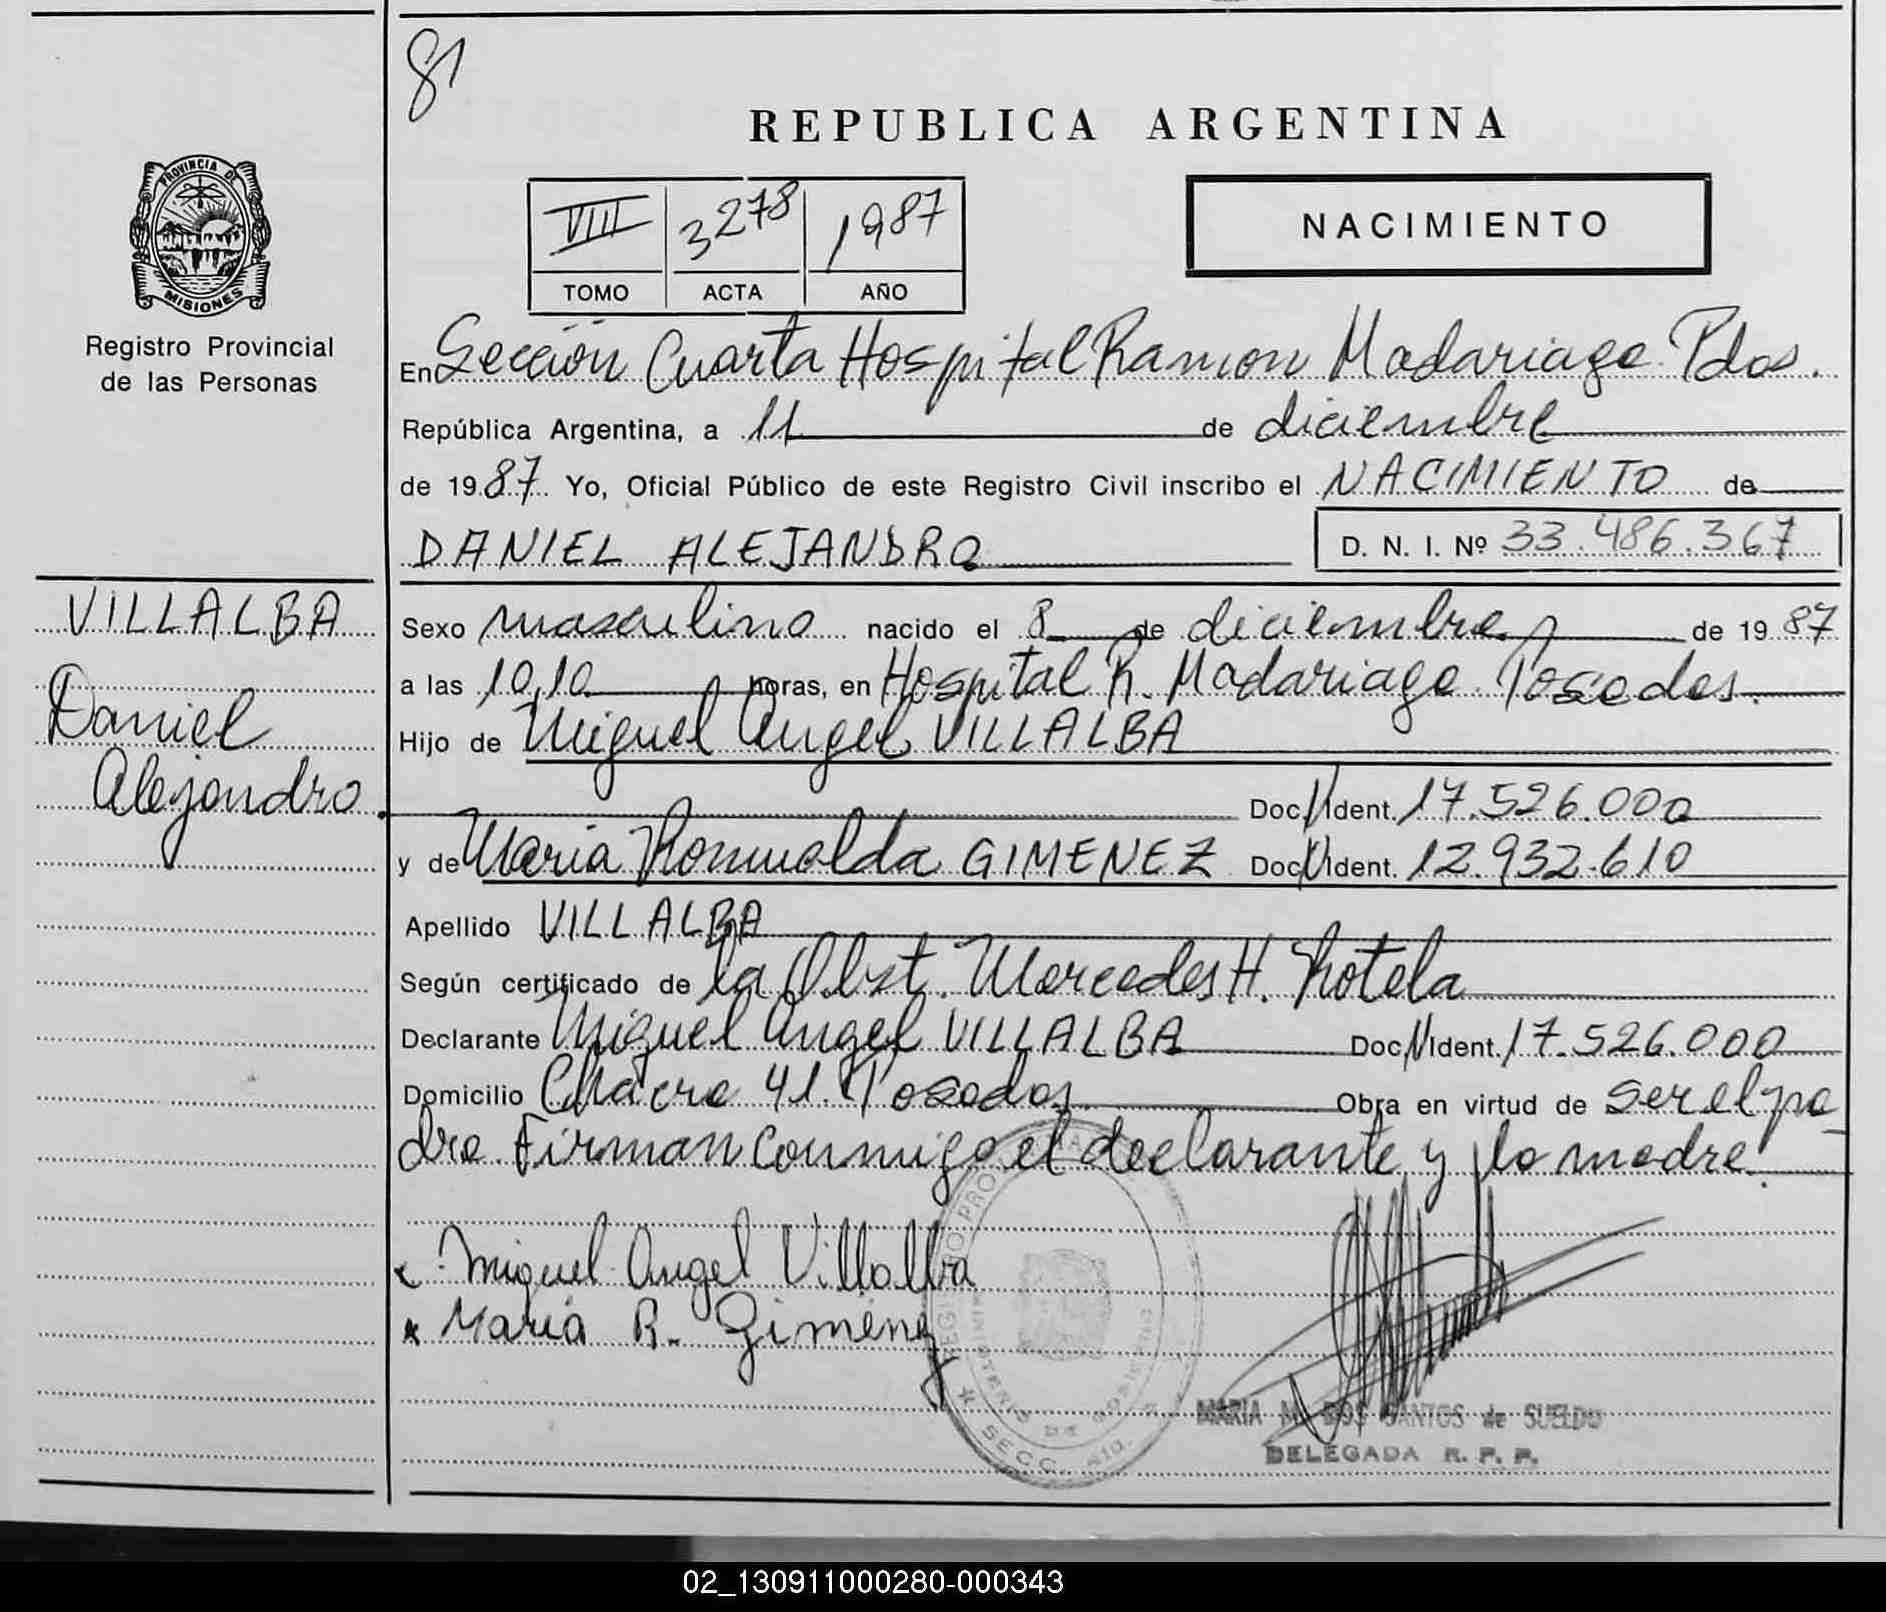 81
REPUBLICA ARGENTINA
PROVINCIA DE
MISIONES
Registro Provincial
de las Personas
VIII 3278 1987
TOMO ACTA AÑO
NACIMIENTO
En Sección Cuarta Hospital Ramon Madariaga Pdas.
República Argentina, a 11 de diciembre
de 1987 Yo, Oficial Público de este Registro Civil inscribo el NACIMIENTO de
DANIEL ALEJANDRO D. N. I. Nº 33.486.367
VILLALBA
Daniel
Alejandro.
Sexo masculino nacido el 8 de diciembre de 1987
a las 10,10 horas, en Hospital R. Madariaga Posadas.
Hijo de Miguel Angel VILLALBA
Doc. Ident. 17.526.000
y de Maria Romualda GIMENEZ Doc. Ident. 12.932.610
Apellido VILLALBA
Según certificado de la Obst. Mercedes H. Rotela
Declarante Miguel Angel VILLALBA Doc. Ident. 17.526.000
Domicilio Chacra 41. Posadas Obra en virtud de ser el pa
dre. Firman conmigo el declarante y la madre.
Miguel Angel Villalba
Maria R. Gimenez
MARIA M. DOS SANTOS de SUELDO
DELEGADA R. P. P.
SECC. 4ta.
02_130911000280-000343